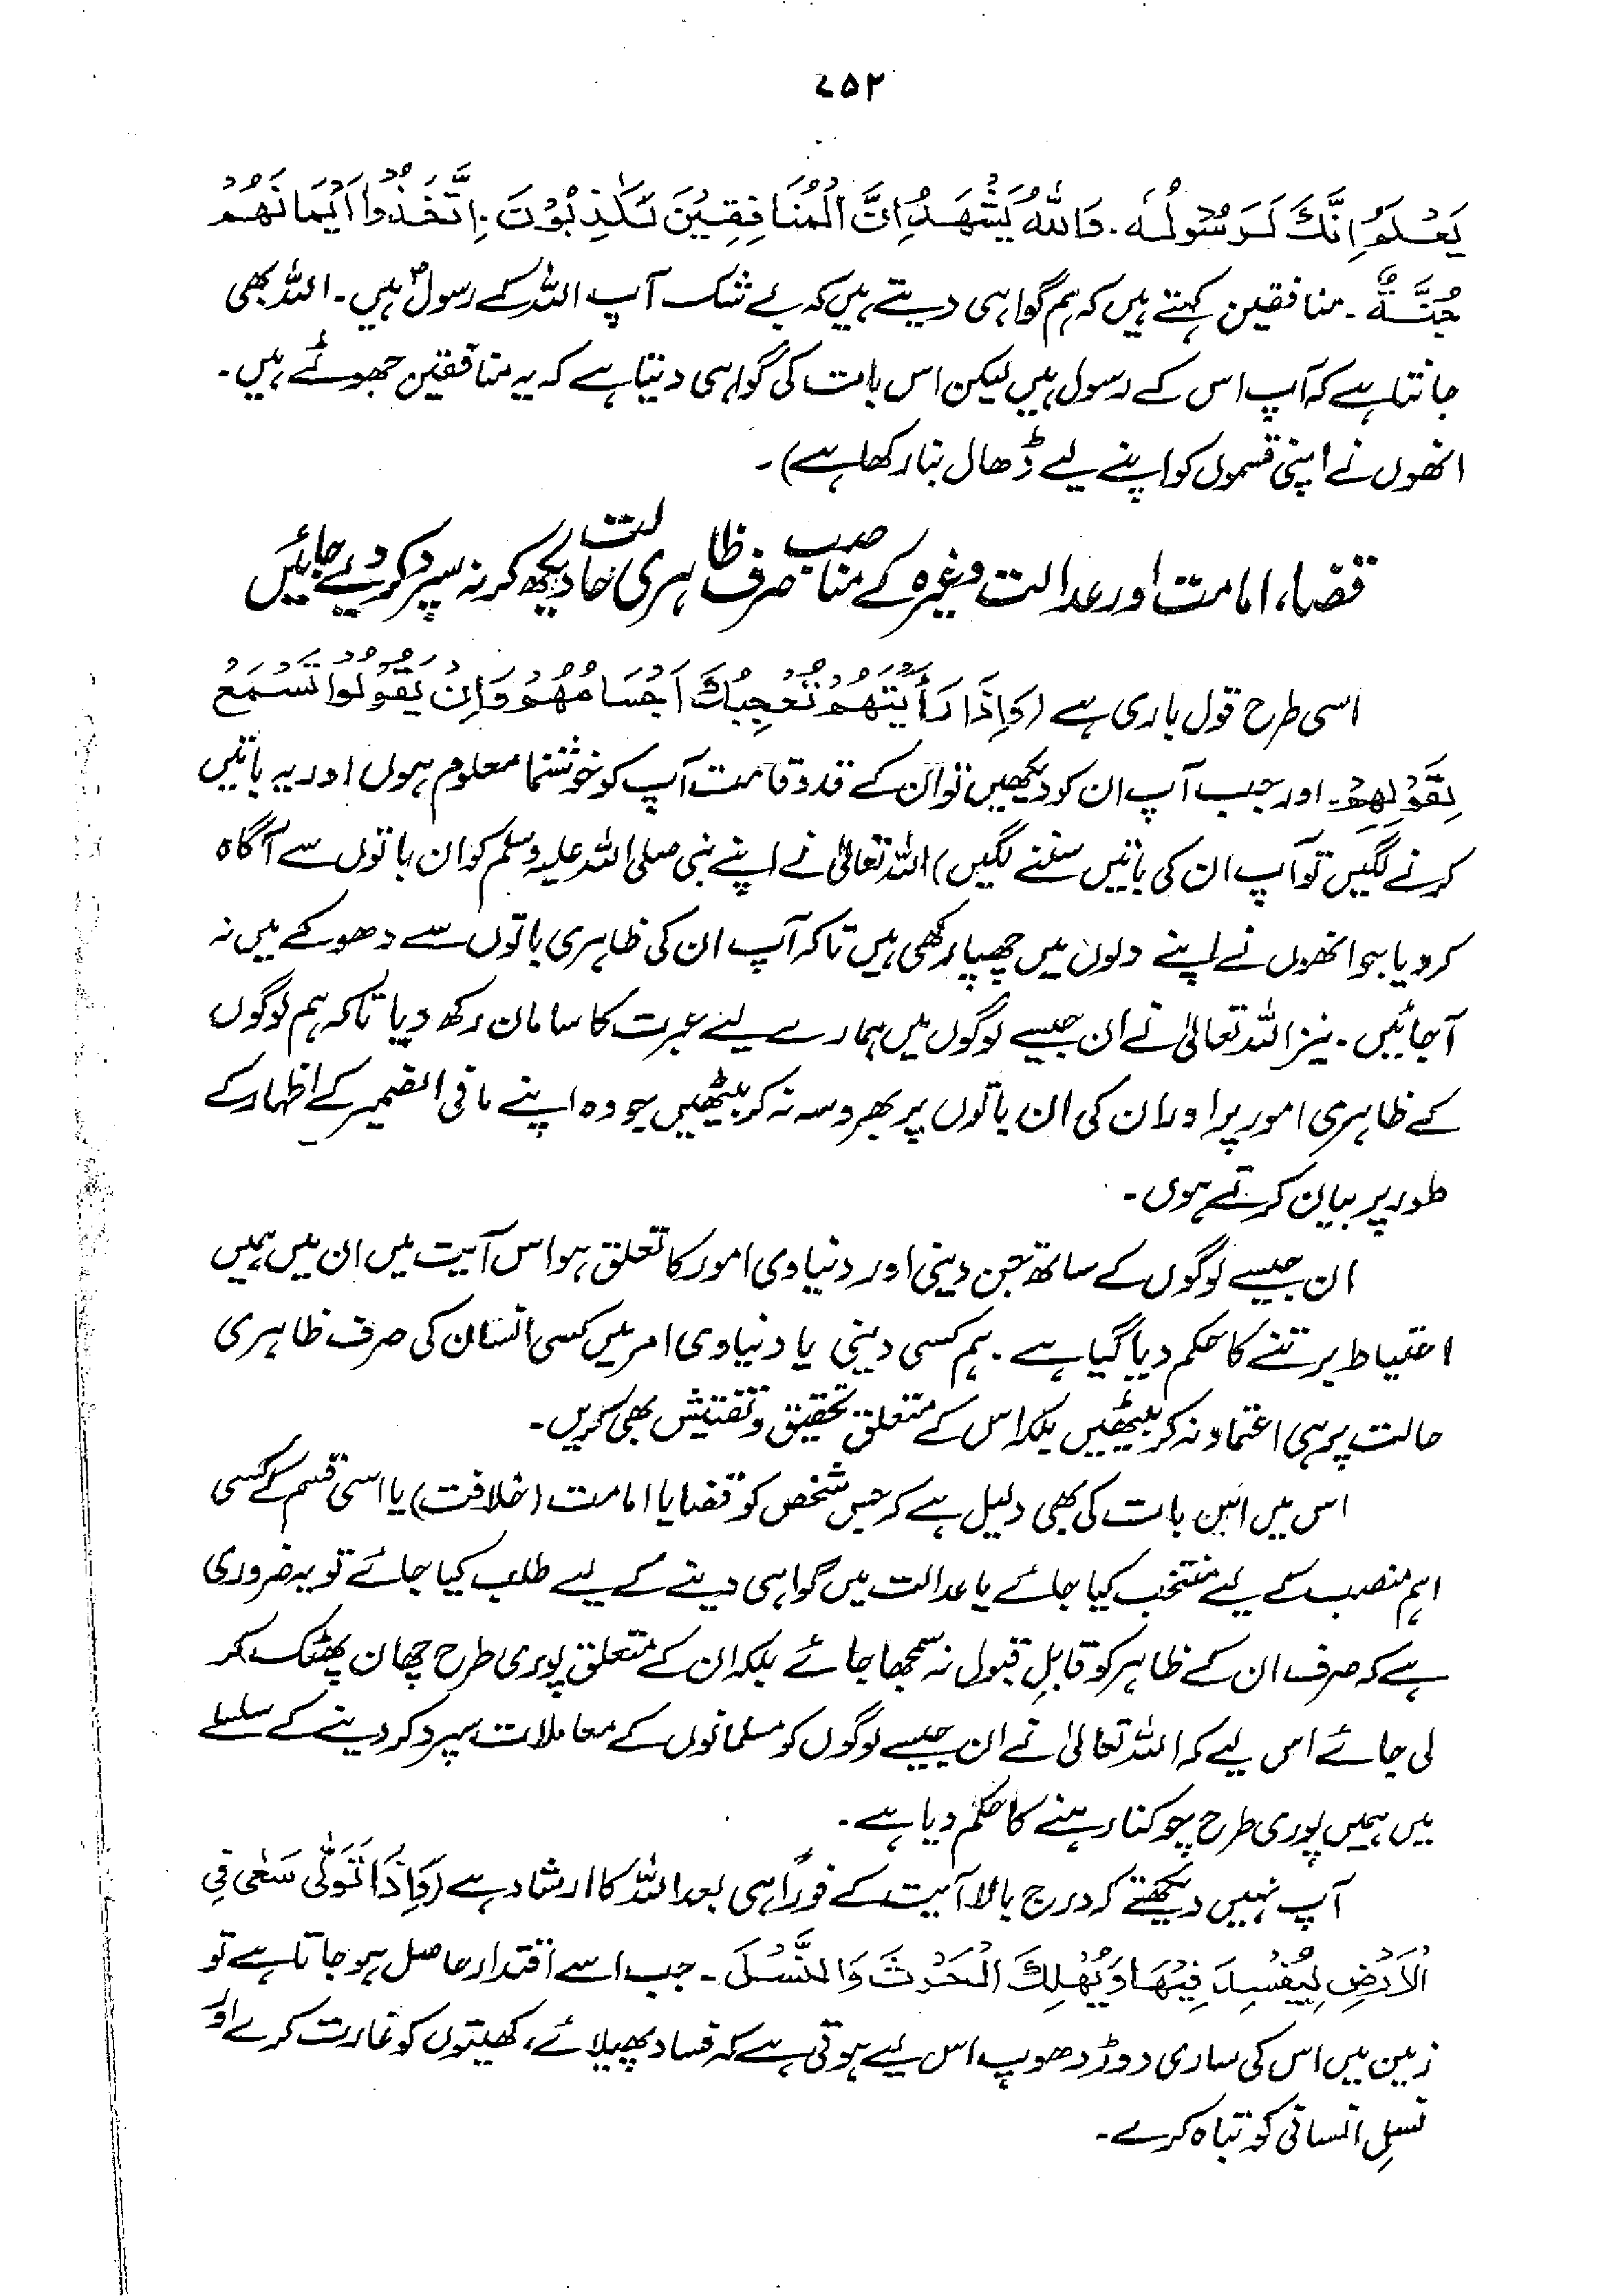 ۷۵۲
يَعْلَمُ اِنَّكَ لَرَسُوْلُهٗ۔ وَاللهُ يَشْهَدُ اِنَّ الْمُنَافِقِيْنَ لَكٰذِبُوْنَ۔ اِتَّخَذُوْا اَيْمَانَهُمْ
جُنَّةً۔ منافقین کہتے ہیں کہ ہم گواہی دیتے ہیں کہ بے شک آپ اللہ کے رسولؐ ہیں۔ اللہ بھی
جانتا ہے کہ آپ اس کے رسول ہیں لیکن اس بات کی گواہی دیتا ہے کہ یہ منافقین جھوٹے ہیں۔
انھوں نے اپنی قسموں کو اپنے لیے ڈھال بنا رکھا ہے)۔
قضاء، امامت اور عدالت وغیرہ کے مناصب صرف ظاہری حالت دیکھ کر نہ سپرد کر دیے جائیں
اسی طرح قول باری ہے (وَاِذَا رَأَيْتَهُمْ تُعْجِبُكَ اَجْسَامُهُمْ وَاِنْ يَقُوْلُوْا تَسْمَعْ
لِقَوْلِهِمْ۔ اور جب آپ ان کو دیکھیں تو ان کے قد و قامت آپ کو خوشنما معلوم ہوں اور یہ باتیں
کرنے لگیں تو آپ ان کی باتیں سننے لگیں) اللہ تعالیٰ نے اپنے نبی صلی اللہ علیہ وسلم کو ان باتوں سے آگاہ
کر دیا جو انھوں نے اپنے دلوں میں چھپا رکھی ہیں تاکہ آپ ان کی ظاہری باتوں سے دھوکے میں نہ
آ جائیں۔ نیز اللہ تعالیٰ نے ان جیسے لوگوں میں ہمارے لیے عبرت کا سامان رکھ دیا تاکہ ہم لوگوں
کے ظاہری امور پر اور ان کی ان باتوں پر بھروسہ نہ کر بیٹھیں جو وہ اپنے مافی الضمیر کے اظہار کے
طور پر بیان کرتے ہوں۔
ان جیسے لوگوں کے ساتھ جن دینی اور دنیاوی امور کا تعلق ہو اس آیت میں ان میں ہمیں
احتیاط برتنے کا حکم دیا گیا ہے۔ ہم کسی دینی یا دنیاوی امر میں کسی انسان کی صرف ظاہری
حالت پر ہی اعتماد نہ کر بیٹھیں بلکہ اس کے متعلق تحقیق و تفتیش بھی کریں۔
اس میں اس بات کی بھی دلیل ہے کہ جس شخص کو قضا یا امامت (خلافت) یا اسی قسم کے کسی
اہم منصب کے لیے منتخب کیا جائے یا عدالت میں گواہی دینے کے لیے طلب کیا جائے تو یہ ضروری
ہے کہ صرف ان کے ظاہر کو قابلِ قبول نہ سمجھا جائے بلکہ ان کے متعلق پوری طرح چھان پھٹک کر
لی جائے اس لیے کہ اللہ تعالیٰ نے ان جیسے لوگوں کو مسلمانوں کے معاملات سپرد کر دینے کے سلسلے
میں ہمیں پوری طرح چوکنا رہنے کا حکم دیا ہے۔
آپ نہیں دیکھتے کہ درج بالا آیت کے فوراً ہی بعد اللہ کا ارشاد ہے (وَاِذَا تَوَلّٰى سَعٰى فِي
الْاَرْضِ لِيُفْسِدَ فِيْهَا وَيُهْلِكَ الْحَرْثَ وَالنَّسْلَ۔ جب اسے اقتدار حاصل ہو جاتا ہے تو
زمین میں اس کی ساری دوڑ دھوپ اس لیے ہوتی ہے کہ فساد پھیلائے، کھیتوں کو غارت کرے اور
نسلِ انسانی کو تباہ کرے۔